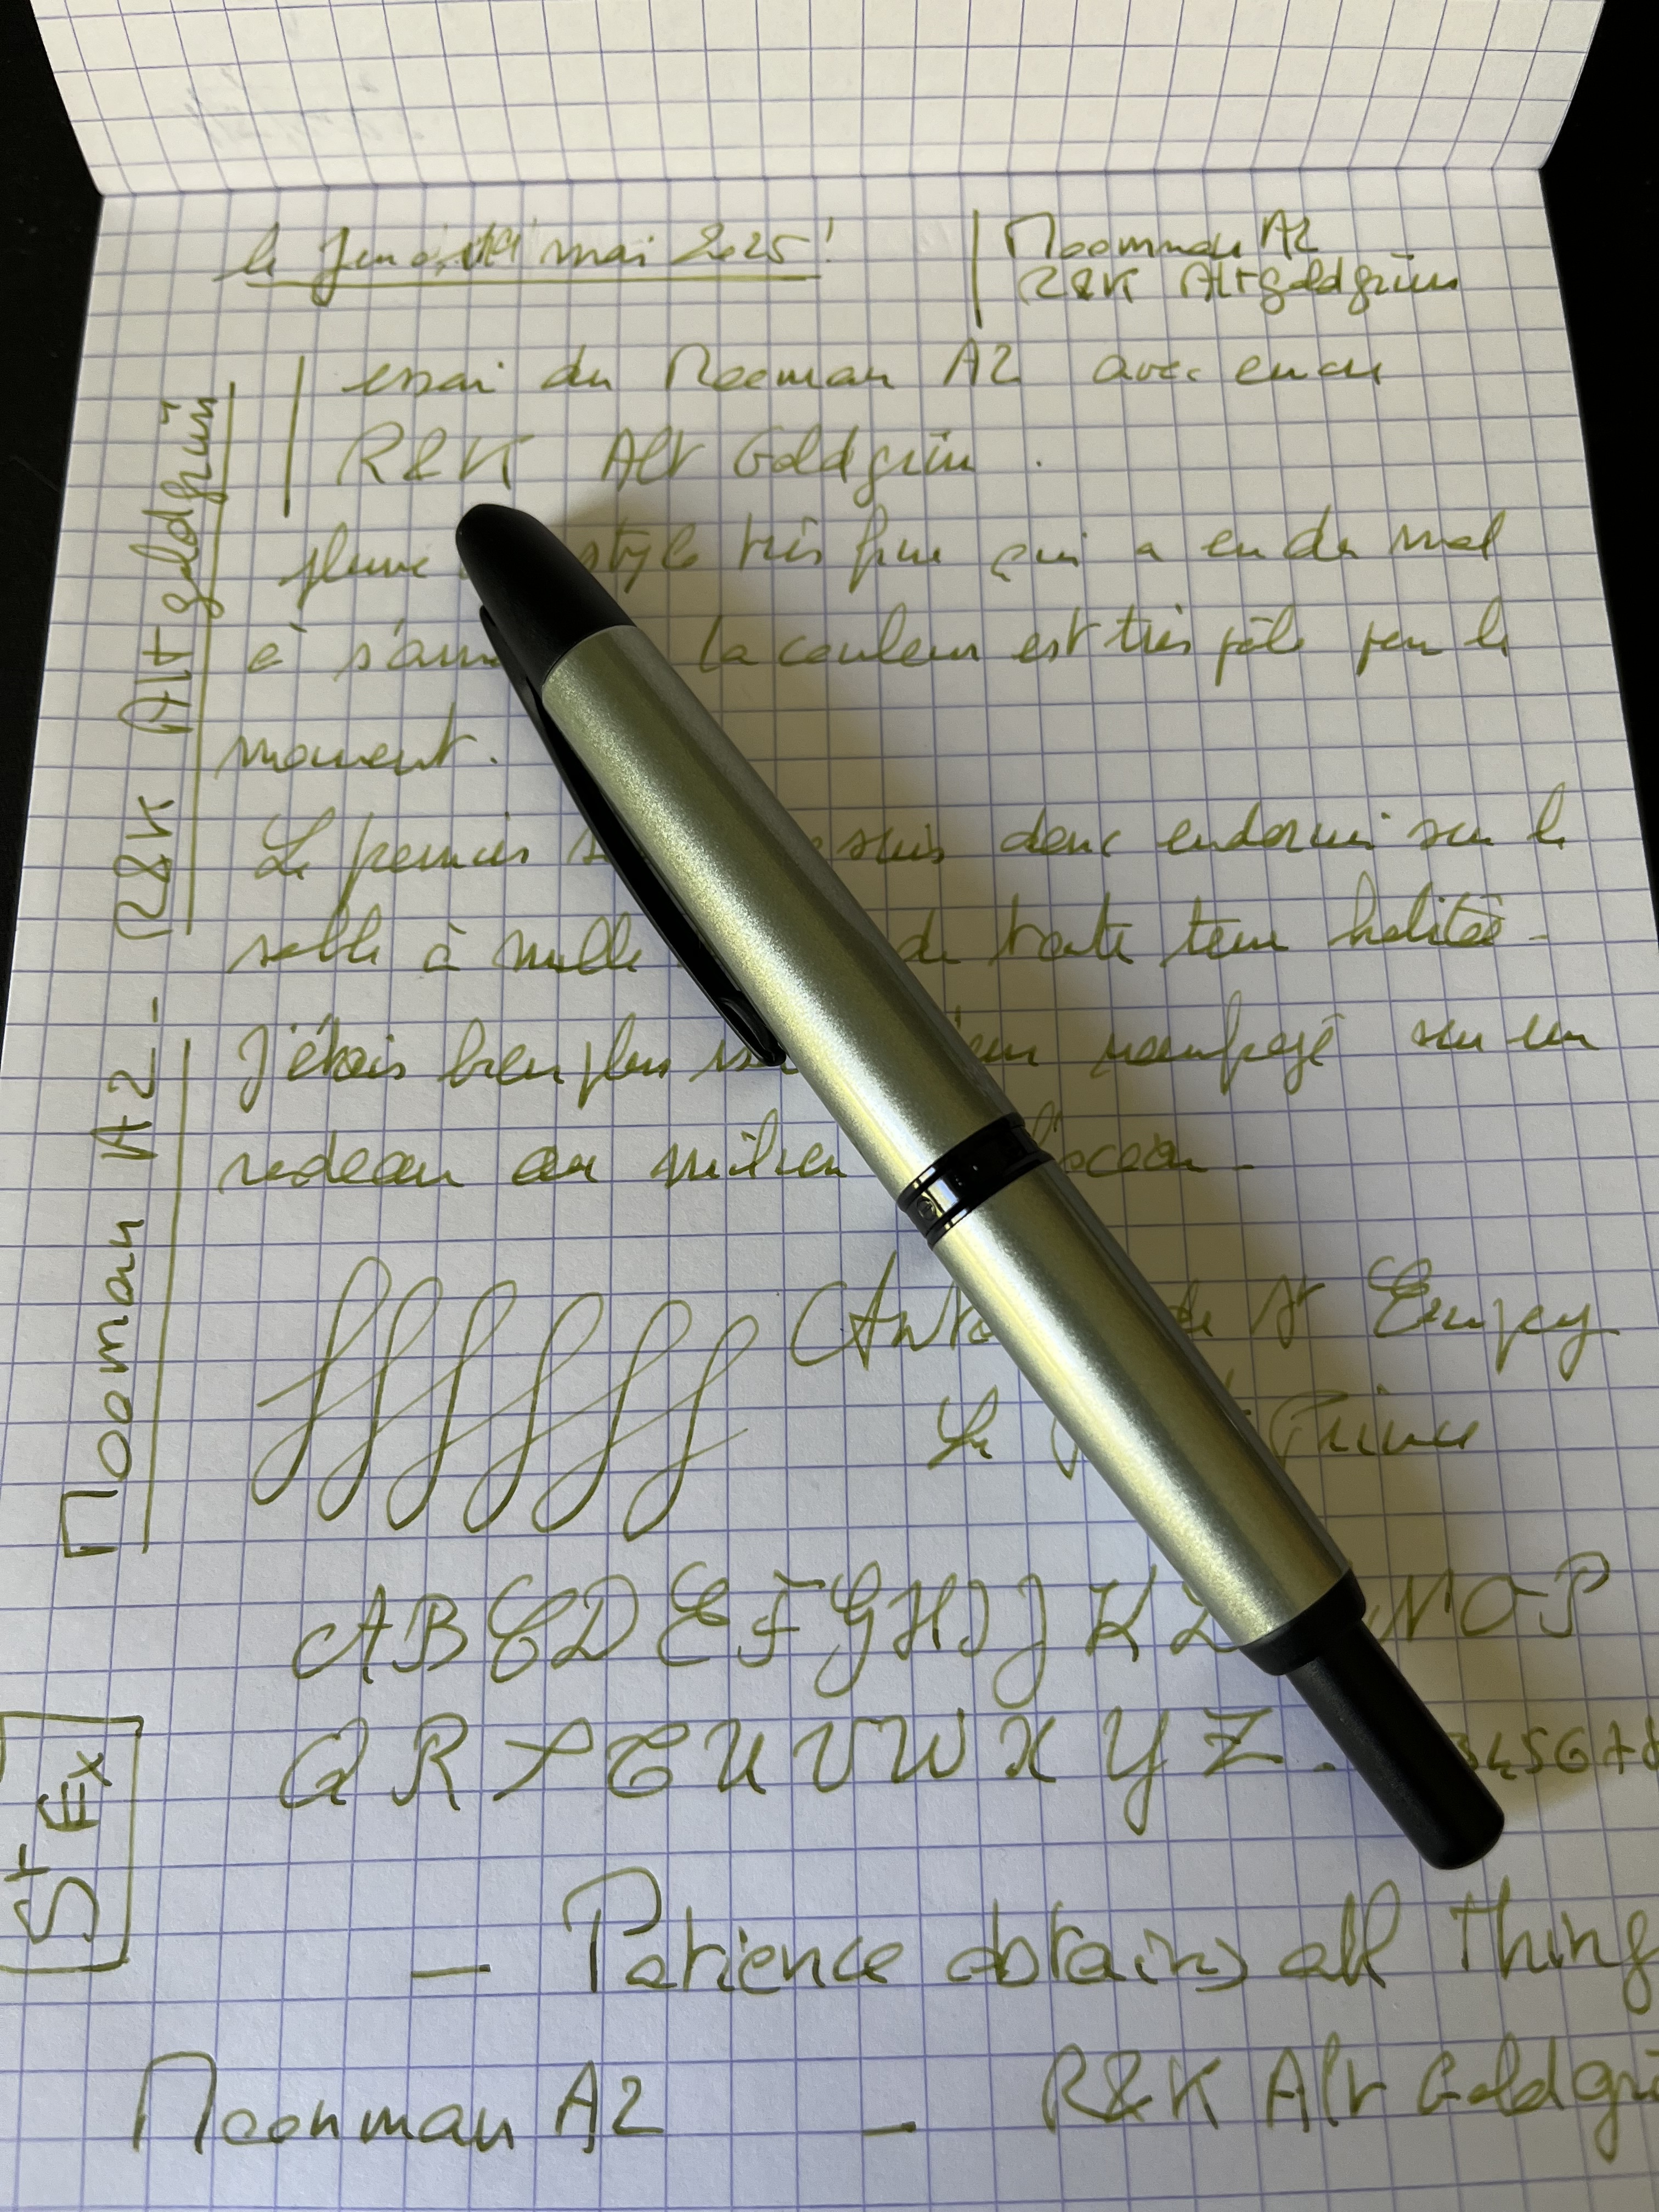 le Jeudi mai 2025!
Moonman A2
R&K Altgoldgrün
essai du Mooman A2 avec encre
R&K Alt Goldgrün.
plume style très fine qui a eu du mal
à La couleur est très pâle pour le
moment.
Le premier suis donc endormi sur le
sable à mille de toute terre
J'étais bien plus naufragé sur un
radeau au milieu l'océan.
ffffff
de St Exupéry
Le Prince
A B C D E F G H I J K L N O P
Q R S T U V W X Y Z. 345678
— Patience obtains all thing
Moonman A2 — R&K Alt Goldgrü
Mooman A2 - R&K Altgoldgrün
St Ex